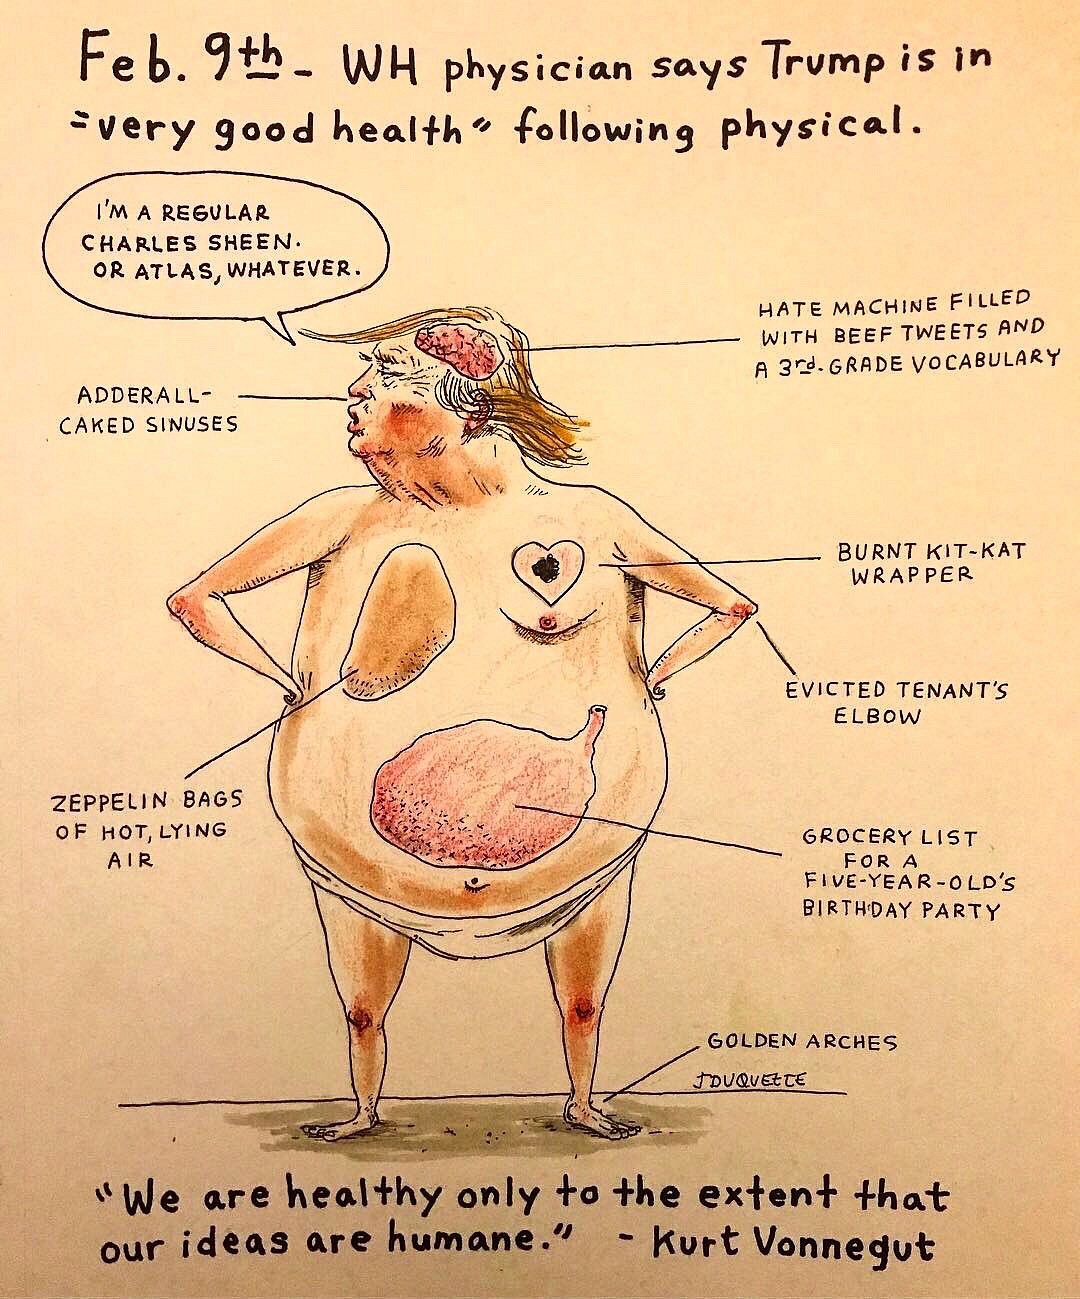 Feb. 9th - WH physician says Trump is in
"very good health" following physical.
I'M A REGULAR
CHARLES SHEEN.
OR ATLAS, WHATEVER.
HATE MACHINE FILLED
WITH BEEF TWEETS AND
A 3rd-GRADE VOCABULARY
ADDERALL-
CAKED SINUSES
BURNT KIT-KAT
WRAPPER
EVICTED TENANT'S
ELBOW
ZEPPELIN BAGS
OF HOT, LYING
AIR
GROCERY LIST
FOR A
FIVE-YEAR-OLD'S
BIRTHDAY PARTY
GOLDEN ARCHES
JDUQUETTE
"We are healthy only to the extent that
our ideas are humane." - Kurt Vonnegut